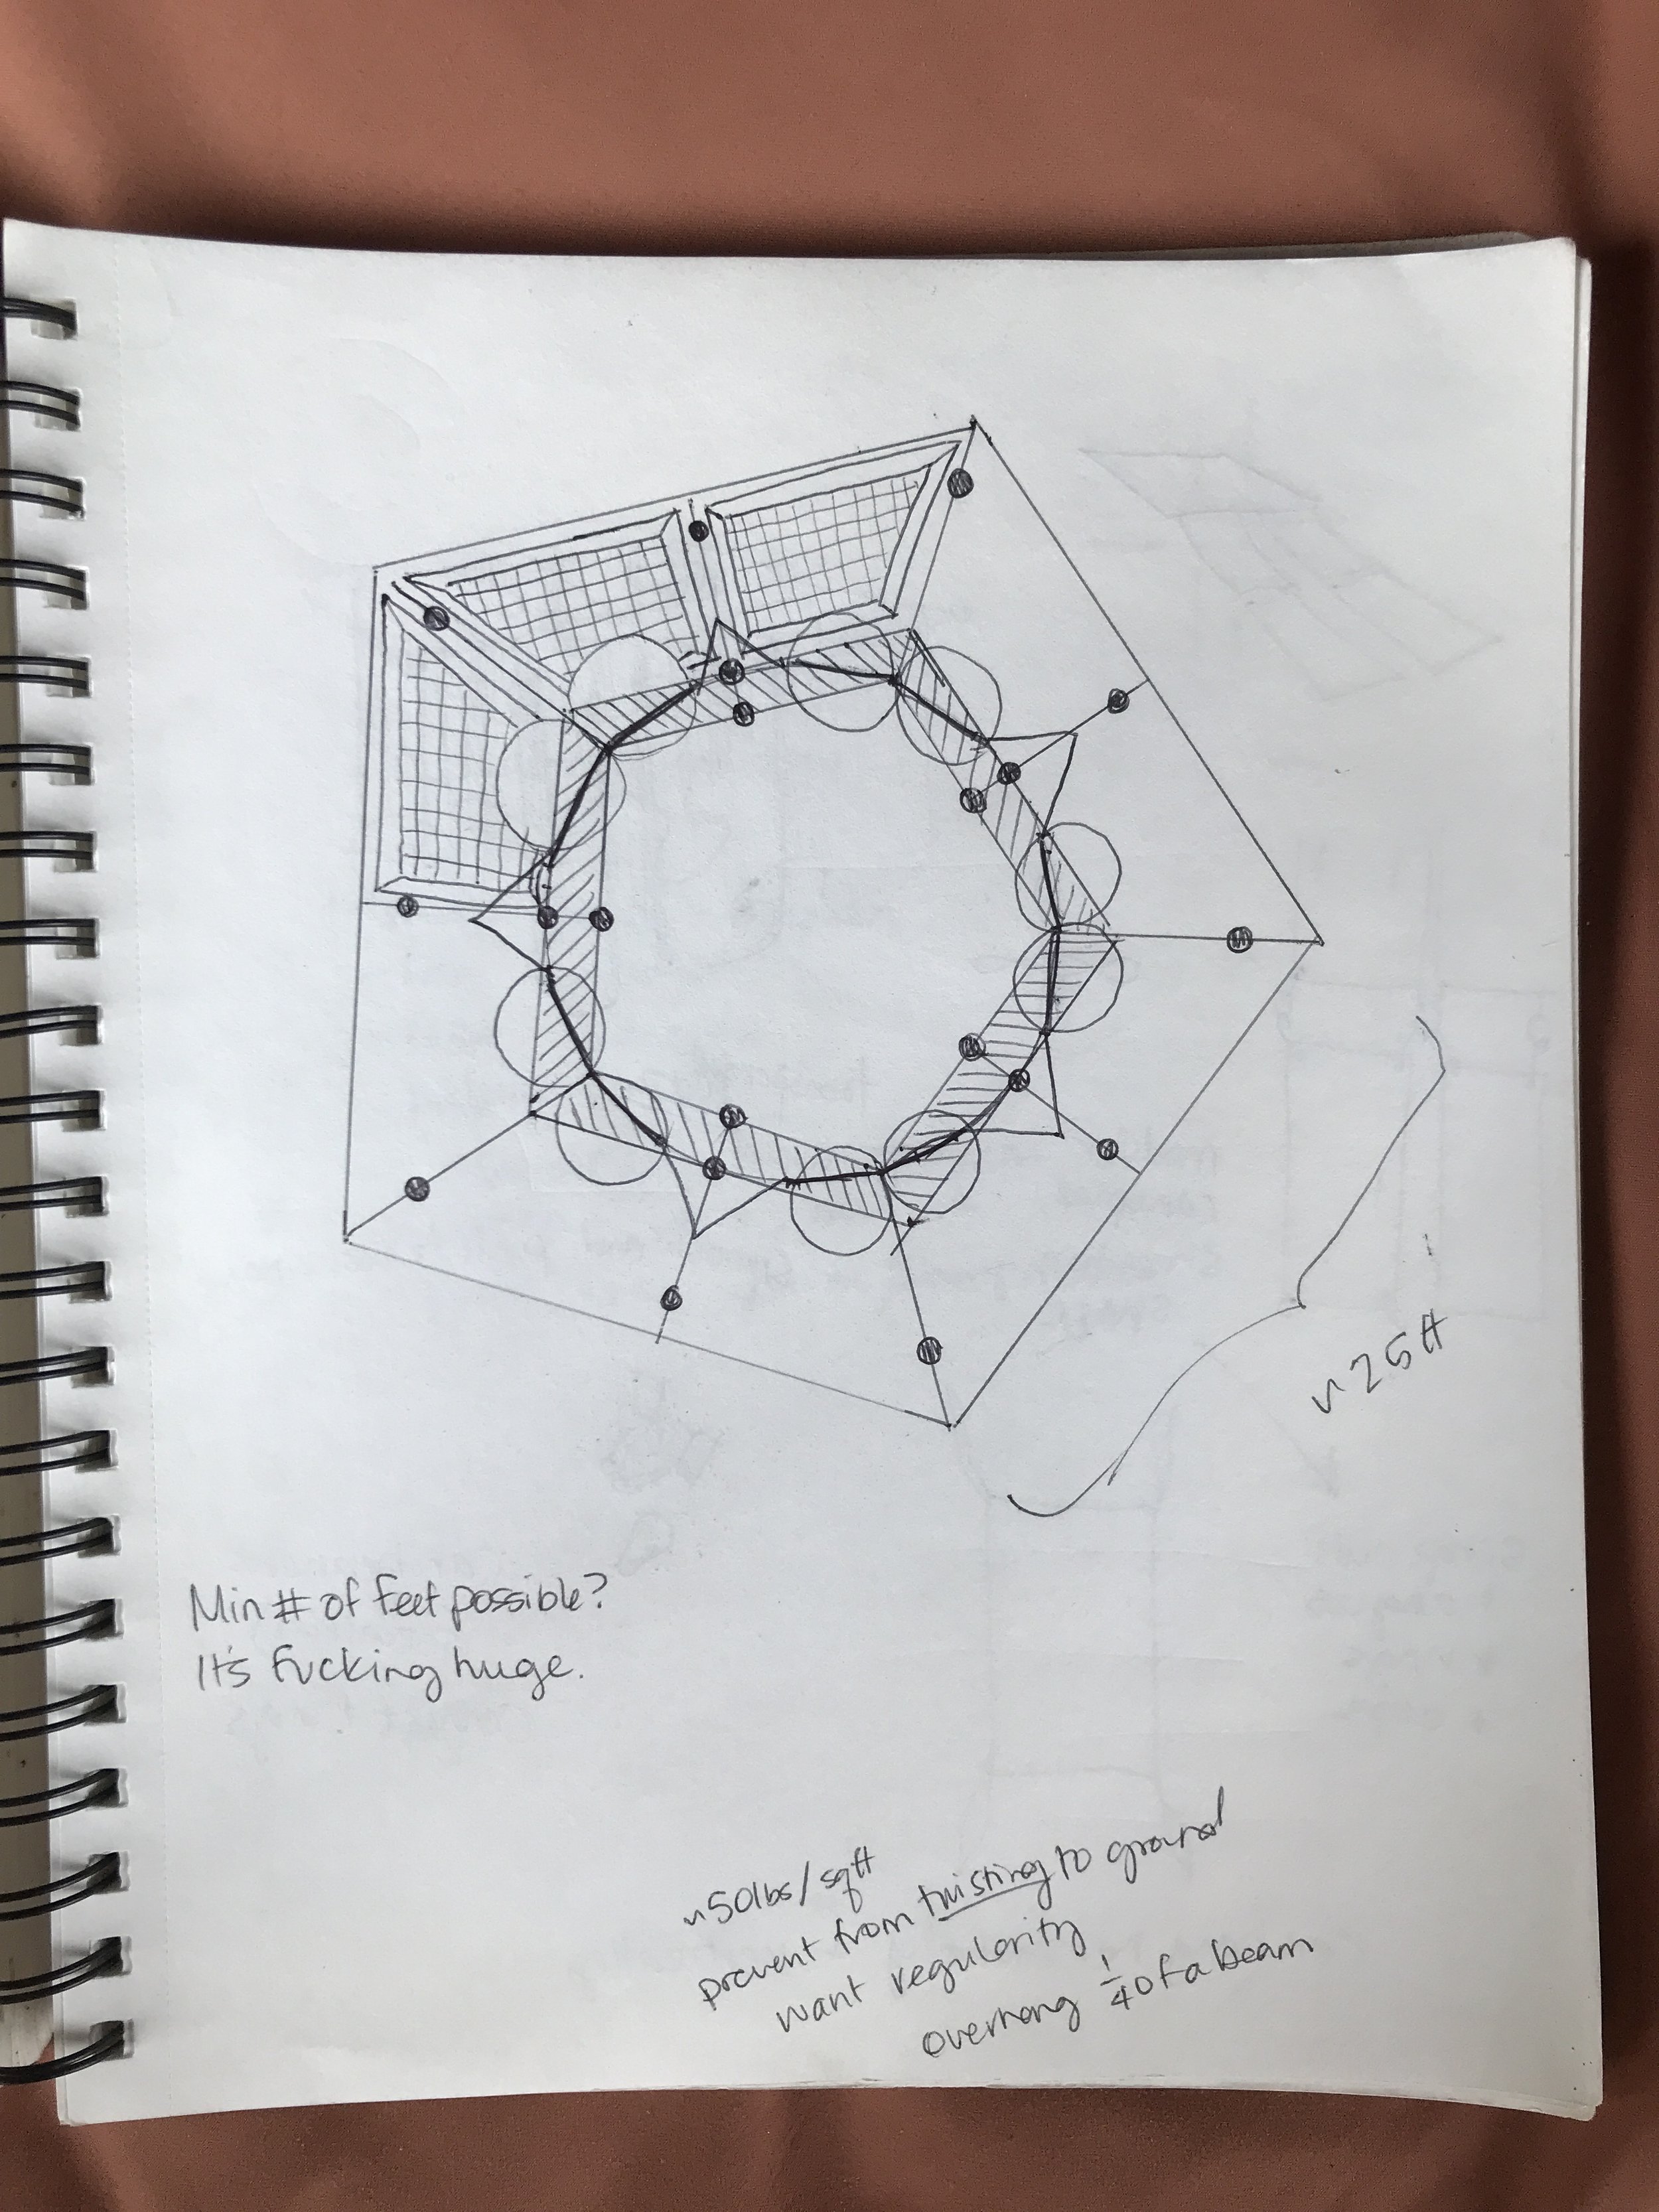 ~25ft
Min # of feet possible?
It's fucking huge.
~50lbs/sqft
prevent from twisting to ground
want regularity
overhang 1/4 of a beam